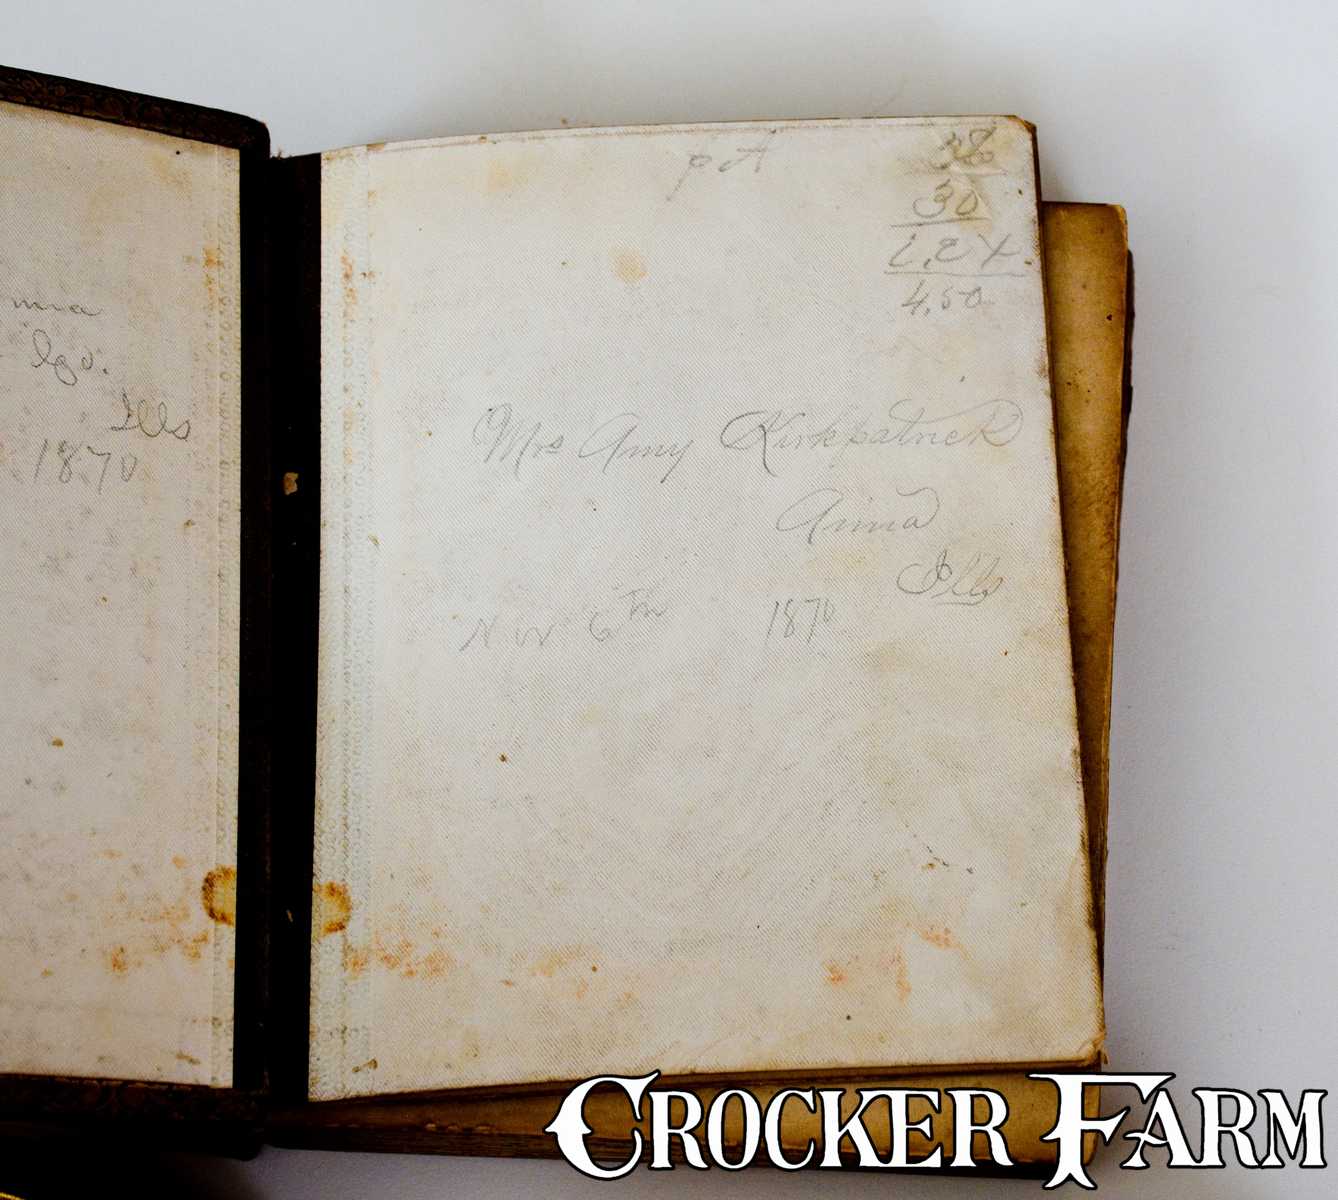 mia
Ills
1870
pA
30
4.50
Mrs Amy Kirkpatrick
Anna
Ills
Nov 6th 1870
CROCKER FARM